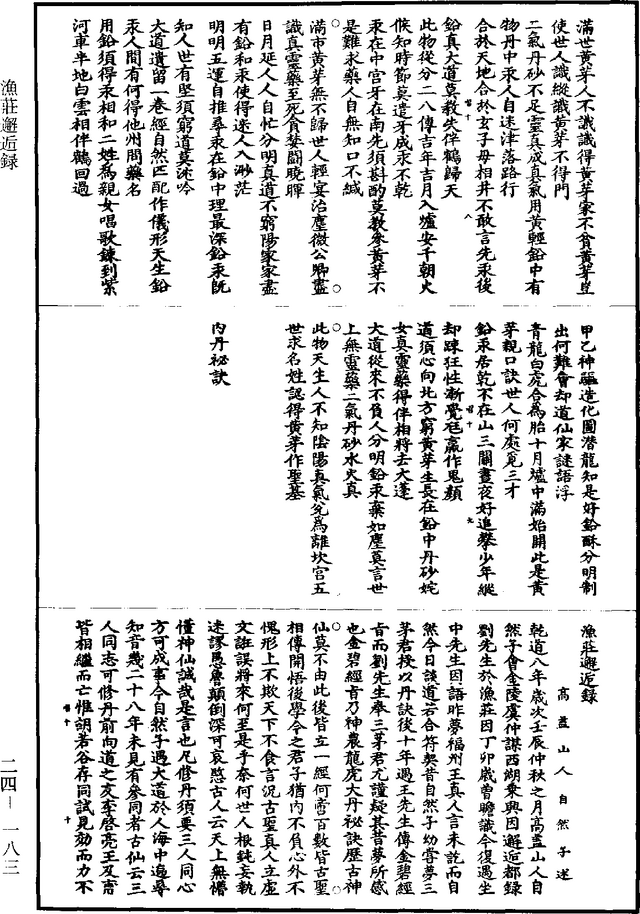 滿世黃芽人不識識得黃芽家不貪黃芽豈
使世人識縱識黃芽不得門
二氣丹砂不足靈真成真氣用黃輕鉛中有
物丹中汞人自迷津落路行
合於天地合於玄子母相并不敢言先汞後
鉛真大道莫教失伴鶴歸天
此物從分二八傳吉年吉月入爐安千朝火
候知時節莫遣牙成汞不乾
汞在中宮牙在南先須斟酌莫教參黃芽不
是難求藥人自無知口不緘
滿市黃芽無不歸世人輕妄治塵微公卿盡
識真靈藥至死貪婪闘曉暉
日月延人人自忙分明真道不窮陽家家盡
有鉛和汞使得迷人入渺茫
明明五運自推尋汞在鉛中理最深鉛汞既
知人世有堅須窮道莫沭吟
大道遺留一卷經自然匹配作儀形天生鉛
汞人間有何得他州問藥名
用鉛須得汞相和二姓為親女唱歌鍊到紫
河車半地白雲相伴鶴回過
甲乙神驅造化圖潛龍知是好鉛酥分明制
出何難會却道仙家謎語浮
青龍白虎合為胎十月爐中滿始開此是黃
芽親口訣世人何處覓三才
鉛汞居乾不在山三關晝夜好追攀少年縱
却踈狂性漸覺尫羸作鬼顏
道須心向北方窮黃芽生長在鉛中丹砂姹
女真靈藥得伴相將去大蓬
大道從來不負人分明鉛汞棄如塵莫言世
上無靈藥二氣丹砂水火真
此物天生人不知陰陽真氣兌為離坎宮五
世求名姓認得黃芽作聖基
內丹祕訣
漁莊邂逅錄
高蓋山人自然子述
乾道八年歲次壬辰仲秋之月高蓋山人自
然子會金陵虞仲謀西湖乘興因邂逅都錄
劉先生於漁莊因丁卯歲曾瞻識今復遇坐
中先生因語昨夢福州王真人言未訖而自
然今日談道若合符契昔自然子幼嘗夢三
茅君授以丹訣後十年遇王先生傳金碧經
旨而劉先生奉三茅君尤謹疑其昔夢所感
也金碧經者乃神農龍虎大丹祕訣歷古神
仙莫不由此後皆立一經何啻百數皆古聖
相傳開悟後學今之君子猶內不負心外不
愧形上不欺天下不食言況古聖真人立虛
文誑誤將來何至是乎奈何世人根鈍妄執
迷謬愚魯顛倒深可哀愍古人云天上無懵
懂神仙誠哉是言也凡修丹須要三人同心
方可成事今自然子遇大道於人海中追尋
知音幾二十八年未見有參同者古仙云三
人同志可修丹前向道之友李啓亮王及甫
皆相繼而亡惟胡若谷存同試見効而力不
漁莊邂逅錄
二四—一八三